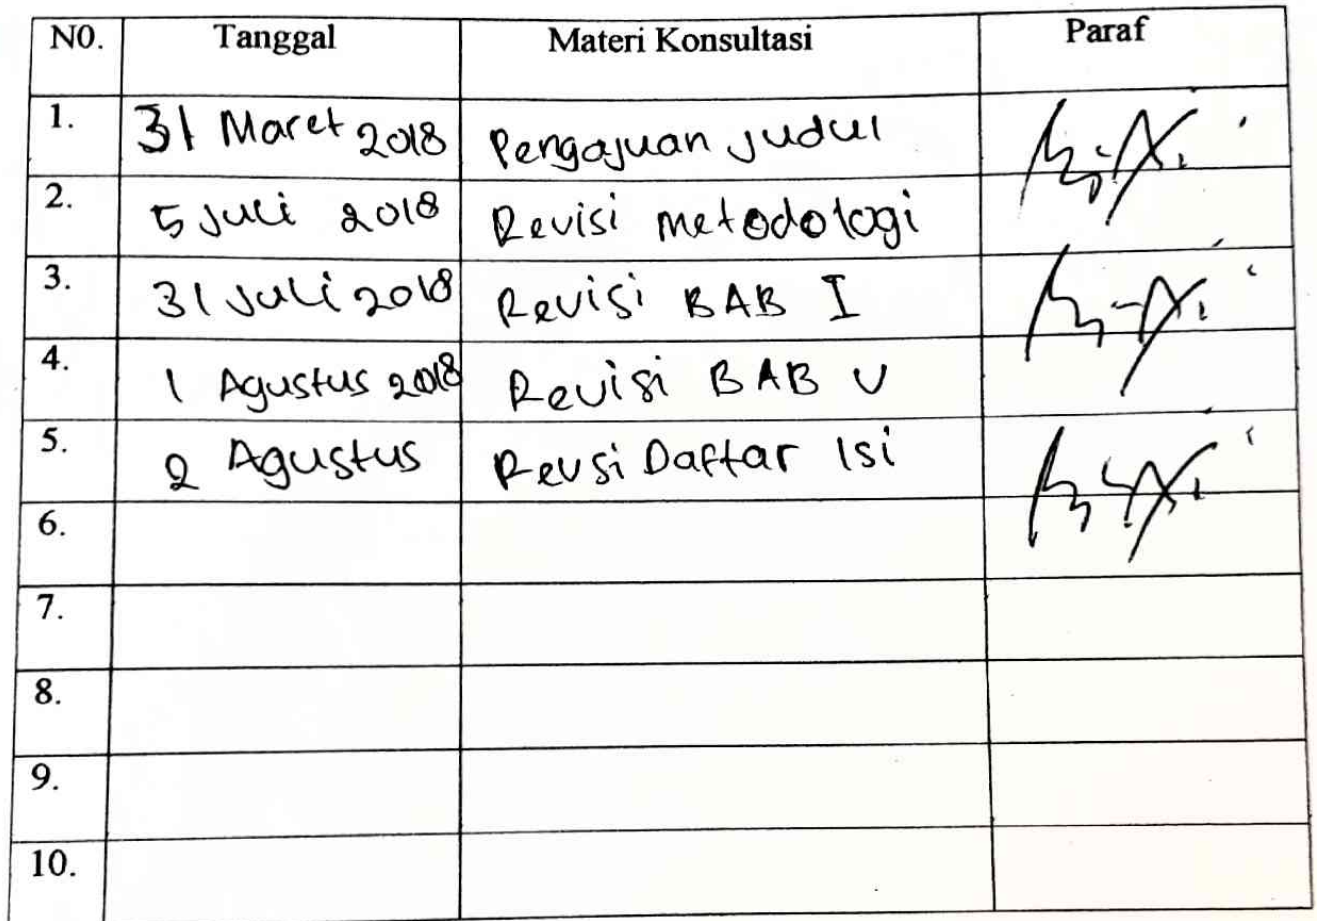 N0. Tanggal Materi Konsultasi Paraf
1. 31 Maret 2018 Pengajuan judul
2. 5 Juli 2018 Revisi metodologi
3. 31 Juli 2018 Revisi BAB I
4. 1 Agustus 2018 Revisi BAB V
5. 2 Agustus Revsi Daftar Isi
6.
7.
8.
9.
10.